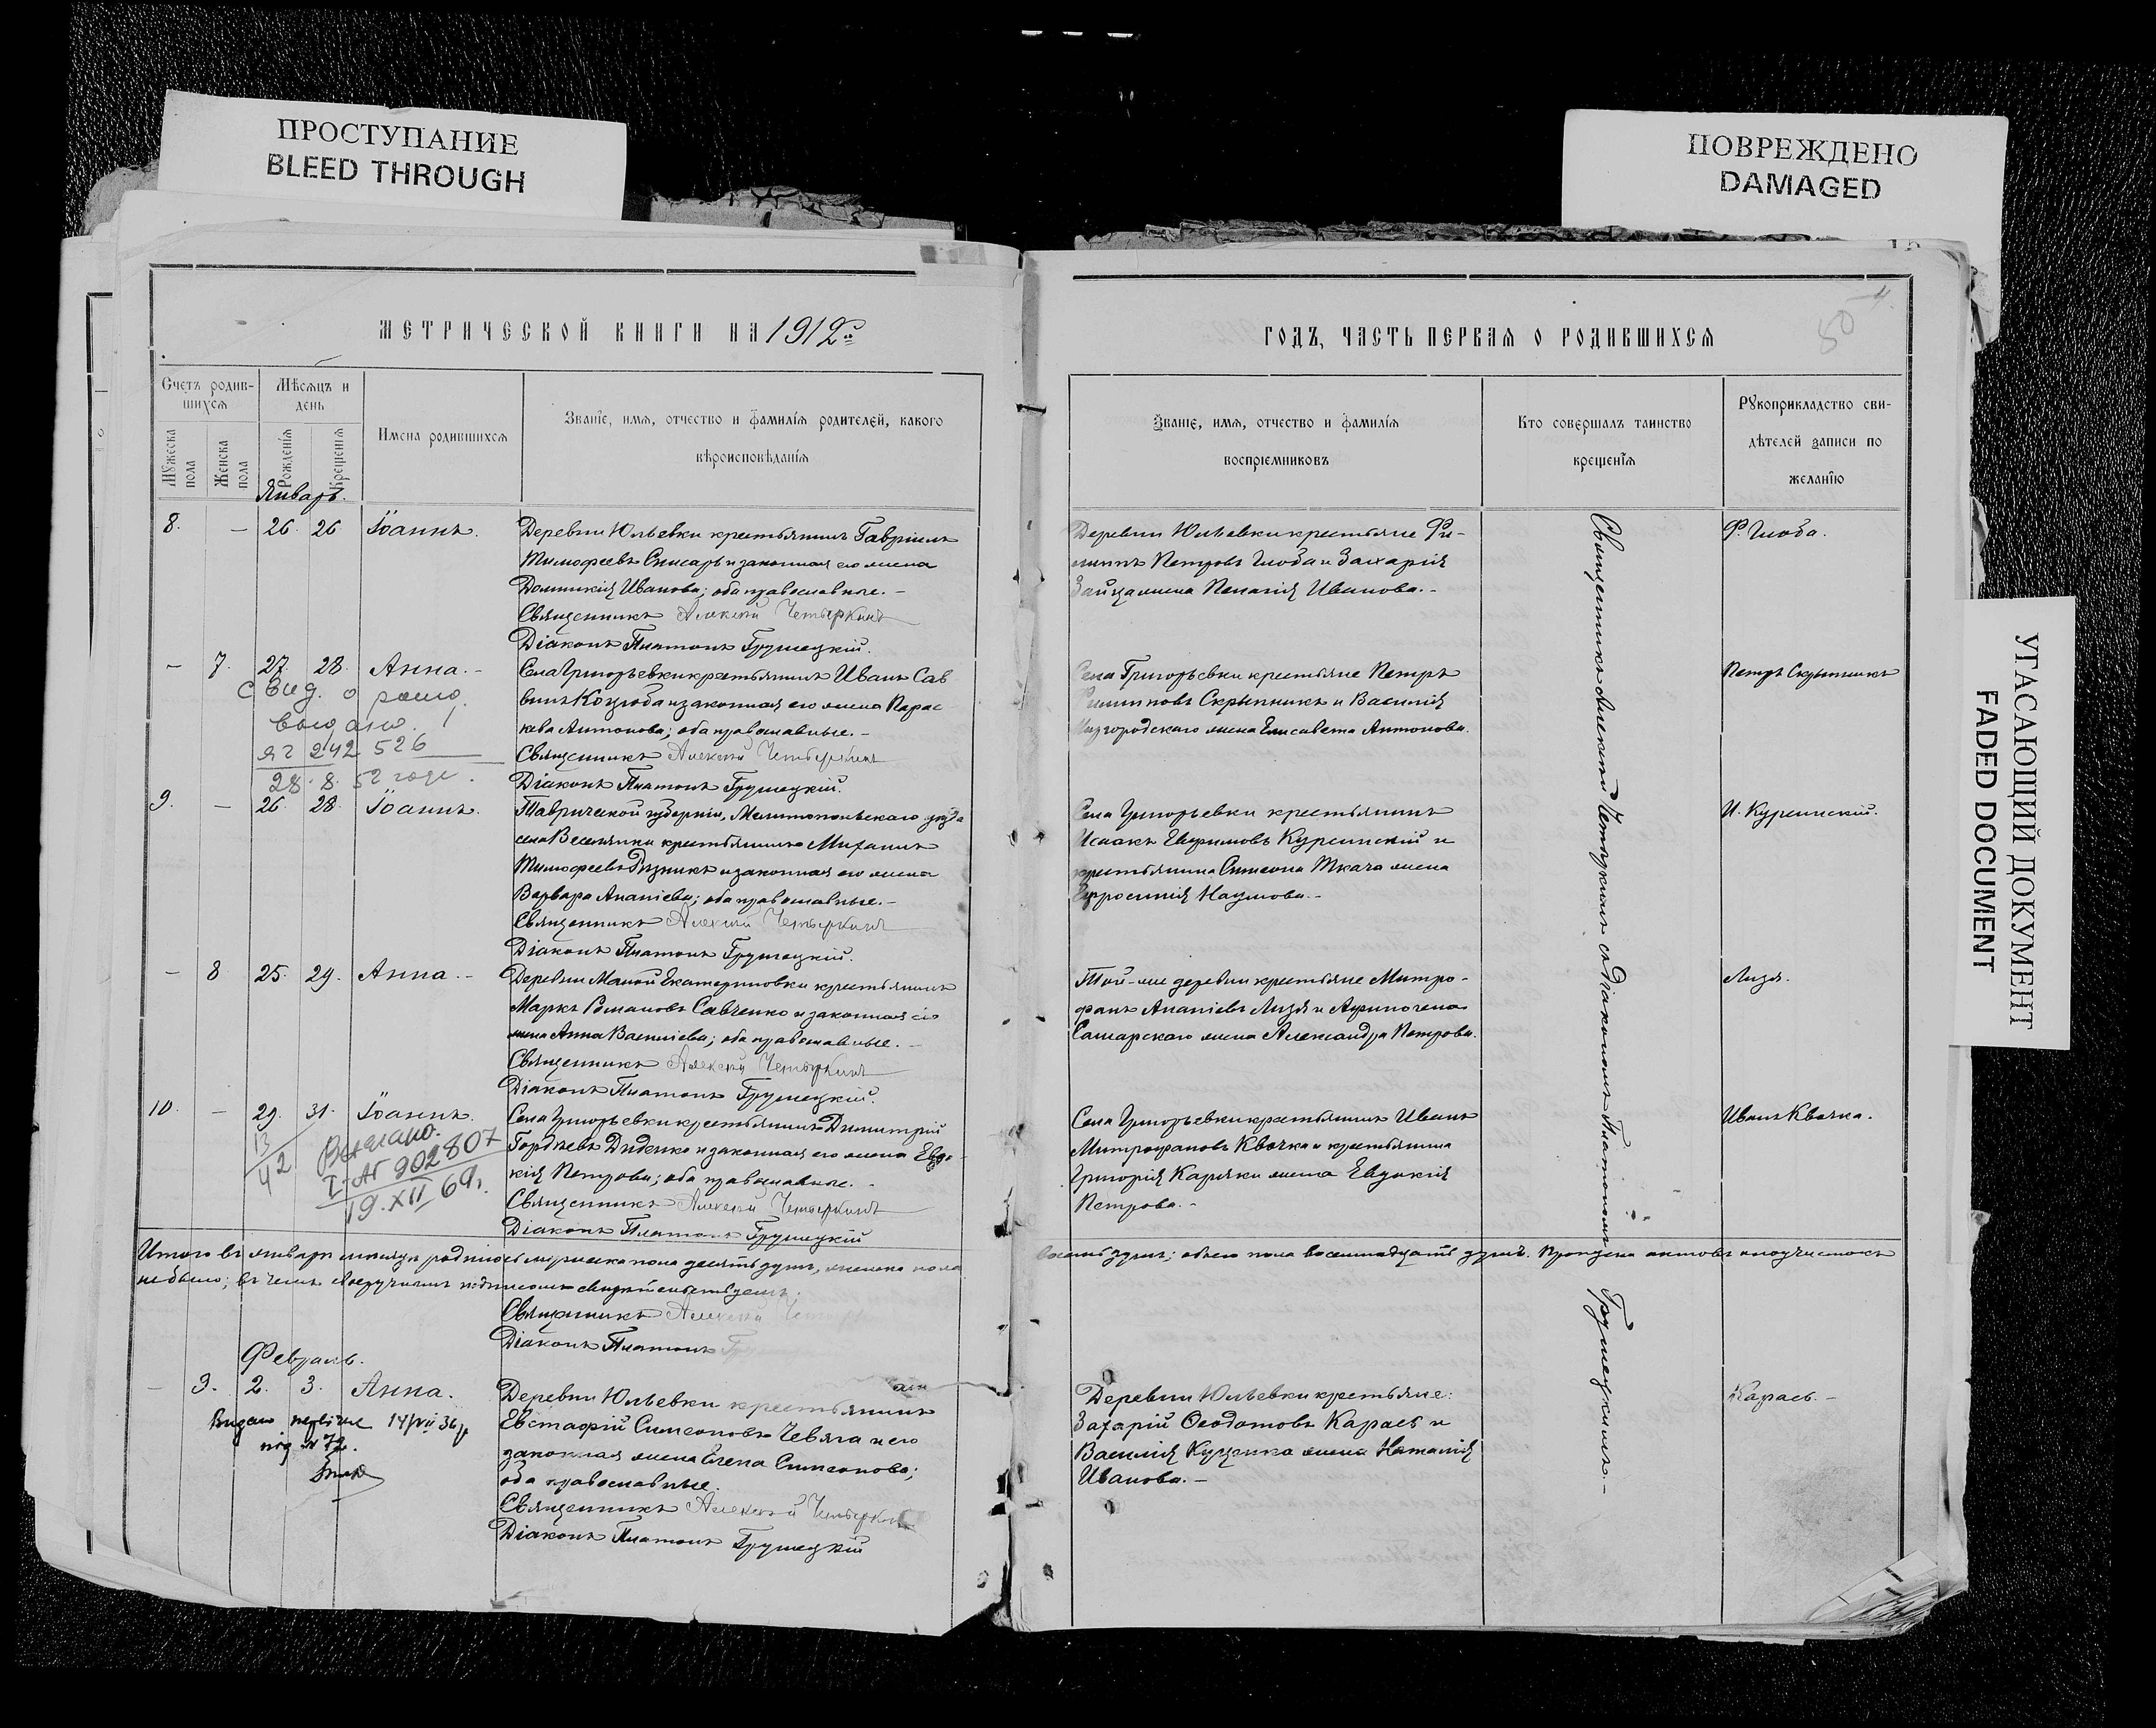 ПРОСТУПАНИЕ
BLEED THROUGH
ПОВРЕЖДЕНО
DAMAGED
УГАСАЮЩИЙ ДОКУМЕНТ
FADED DOCUMENT
МЕТРИЧЕСКОЙ КНИГИ НА 1912й
Счетъ родив-
шихся
Мѣсяцъ и
день
Мужеска
пола
Женска
пола
Рожденія
Крещенія
Имена родившихся
Званіе, имя, отчество и фамилія родителей, какого
вѣроисповѣданія
Январь.
8. — 26. 26 Іоаннъ.
Деревни Юльевки крестьянинъ Гавріилъ
Тимофеевъ Слисарь и законная его жена
Домникія Иванова; оба православные. –
Священникъ Алексѣй Четыркинъ
Діаконъ Платонъ Грушецкій.
— 7. 27. 28. Анна. –
Села Григорьевки крестьянинъ Иванъ Сав
винъ Козуба и законная его жена Парас
кева Антонова; оба православные. –
Священникъ Алексѣй Четыркинъ
Діаконъ Платонъ Грушецкій.
Свид. о рожд.
выдано.
242 526
28. 8. 52 года.
9. — 26. 28. Іоаннъ.
Таврической губерніи, Мелитопольскаго уѣзда
села Веселянки крестьянинъ Михаилъ
Тимофеевъ и законная его жена
Варвара Ананіева; оба православные. –
Священникъ Алексѣй Четыркинъ
Діаконъ Платонъ Грушецкій.
— 8 25. 29. Анна. –
Деревни Малой Екатериновки крестьянинъ
Маркъ Романовъ Савченко и законная его
жена Анна Василіева; оба православные. –
Священникъ Алексѣй Четыркинъ
Діаконъ Платонъ Грушецкій.
10. — 29. 31. Іоаннъ.
Села Григорьевки крестьянинъ Димитрій
Гордѣевъ Диденко и законная его жена Евдо-
кія Петрова; оба православные. –
Священникъ Алексѣй Четыркинъ
Діаконъ Платонъ Грушецкій
13
42
Выслано.
I-АГ 902807
19.XII 69г.
Итого въ январѣ мѣсяцѣ родилось мужеска пола десять душъ, женска пола
не было; въ чемъ своеручнымъ подписомъ свидѣтельствуемъ.
Священникъ Алексѣй
Діаконъ Платонъ
Февраль.
— 9. 2. 3. Анна.
Деревни Юльевки крестьянинъ
Евстафій Симеоновъ Чевяга и его
законная жена Елена Симеонова;
оба православные.
Священникъ Алексѣй Четыркинъ
Діаконъ Платонъ Грушецкій
Видано 14/VII 36 р
під № 72.
ГОДЪ, ЧАСТЬ ПЕРВАЯ О РОДИВШИХСЯ
50
Званіе, имя, отчество и фамилія
воспріемниковъ
Кто совершалъ таинство
крещенія
Рукоприкладство сви-
дѣтелей записи по
желанію
Деревни Юльевки крестьяне Фи-
липпъ Петровъ Глоба и Захарія
Зайца жена Пелагія Иванова. –
Ф. Глоба.
Села Григорьевки крестьяне Петръ
Филипповъ Скрыпникъ и Василія
Миргородскаго жена Елисавета Антонова.
Петръ Скрыпникъ
Села Григорьевки крестьянинъ
Исаакъ Евфимовъ Курсинскій и
крестьянина Симеона Ткача жена
Евфросинія Наумова. –
И. Курсинскій.
Той-же деревни крестьяне Митро-
фанъ Ананіевъ Лизя и Афиногена
Самарскаго жена Александра Петрова.
Лизя.
Села Григорьевки крестьянинъ Иванъ
Митрофановъ Квачка и крестьянина
Григорія Каряки жена Евдокія
Петрова. –
Иванъ Квачка.
восемь душъ; обоего пола восемнадцать душъ. Пропуска актовъ и подчистокъ
Деревни Юльевки крестьяне:
Захарій Феодотовъ Карась и
Василія Куценка жена Наталія
Иванова. –
Карась. –
Священникъ Алексѣй Четыркинъ съ Діакономъ Платономъ Грушецкимъ. –